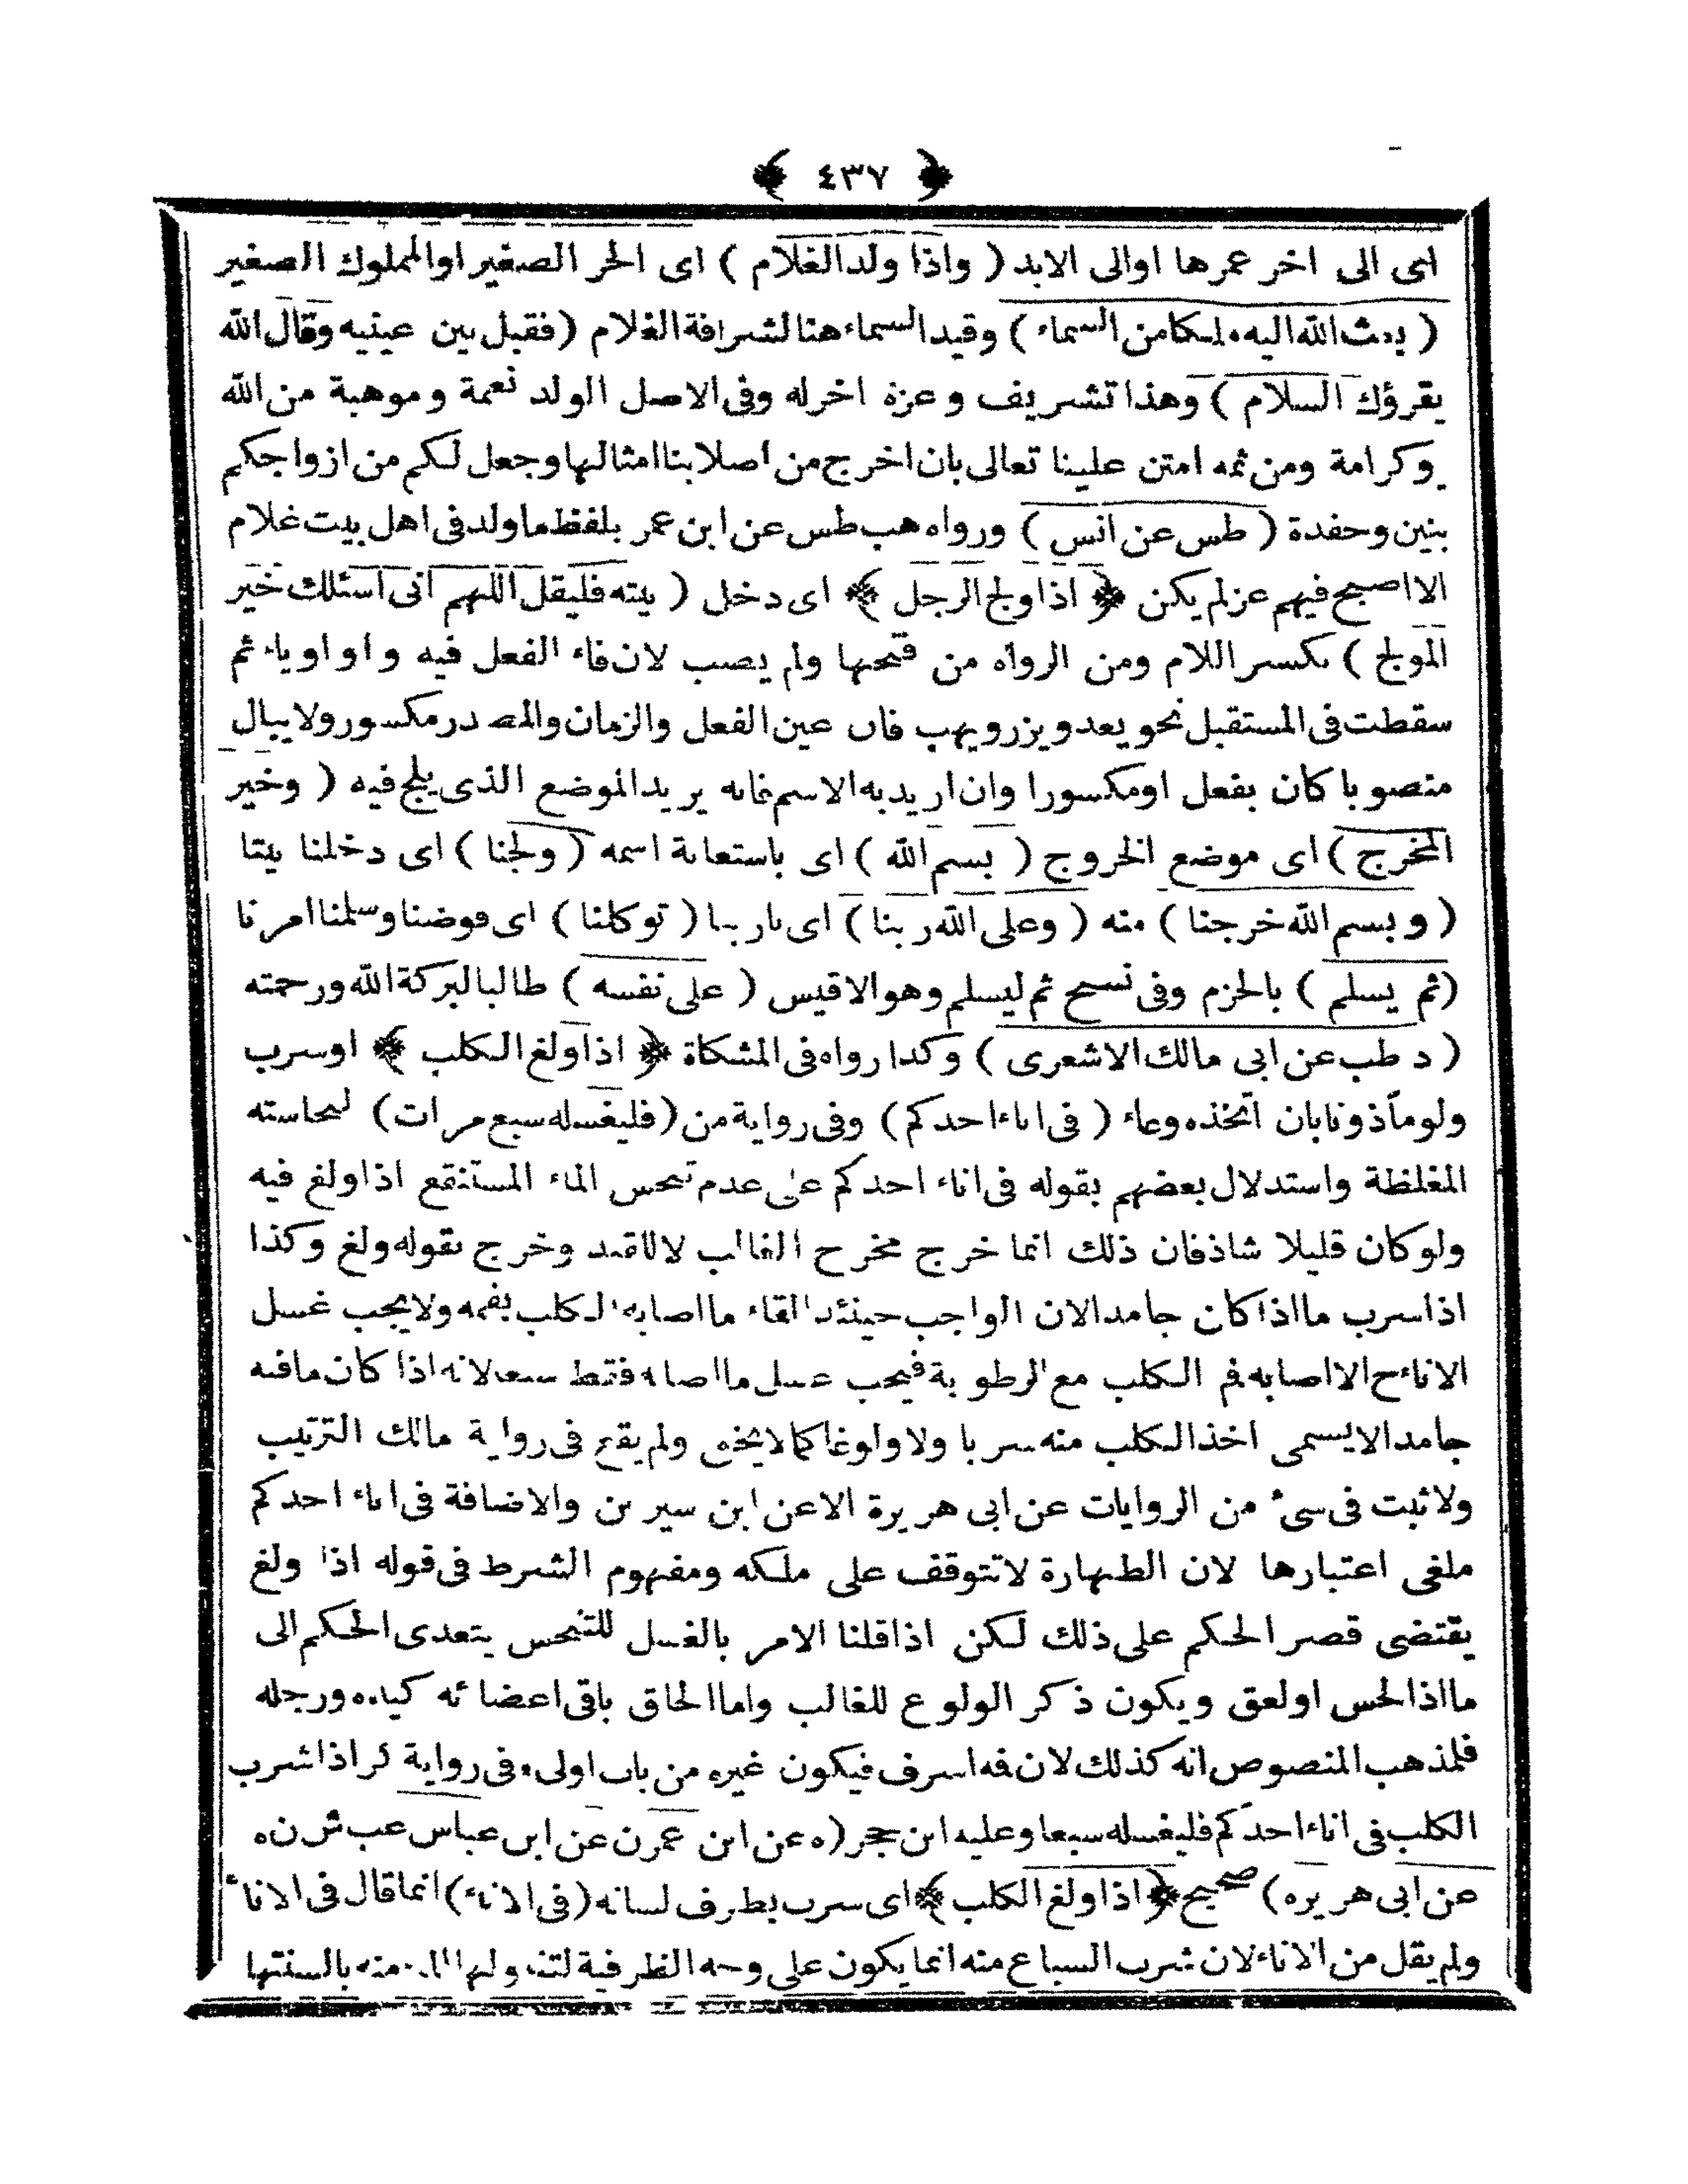 ﴿ ٤٣٧ ﴾
اى الى اخر عمرها اوالى الابد ( واذا ولد الغلام ) اى الحر الصغير اوالمملوك الصغير
( بعث الله اليه ملكا من السماء ) وقيد السماء هنا لشرافة الغلام ( فقبل بين عينيه وقال الله
يقرؤك السلام ) وهذا تشريف وعزة اخرله وفى الاصل الولد نعمة وموهبة من الله
وكرامة ومن ثمه امتن علينا تعالى بان اخرج من اصلابنا امثالها وجعل لكم من ازواجكم
بنين وحفدة ( طس عن انس ) ورواه هب طس عن ابن عمر بلفظ ما ولد فى اهل بيت غلام
الا اصبح فيهم عز لم يكن ﴿ اذا ولج الرجل ﴾ اى دخل ( بيته فليقل اللهم انى اسئلك خير
المولج ) بكسر اللام ومن الرواه من فتحها ولم يصب لان فاء الفعل فيه واو او ياء ثم
سقطت فى المستقبل نحو يعد ويزر ويهب فان عين الفعل والزمان والمصدر مكسور ولا يبال
منصوبا كان بفعل اومكسورا وان اريد به الاسم فانه يريد الموضع الذى يلج فيه ( وخير
المخرج ) اى موضع الخروج ( بسم الله ) اى باستعانة اسمه ( ولجنا ) اى دخلنا بيتا
( وبسم الله خرجنا ) منه ( وعلى الله ربنا ) اى يا ربنا ( توكلنا ) اى فوضنا وسلمنا امرنا
( ثم يسلم ) بالجزم وفى نسخ ثم ليسلم وهو الاقيس ( على نفسه ) طالبا لبركة الله ورحمته
( د طب عن ابى مالك الاشعرى ) وكذا رواه فى المشكاة ﴿ اذا ولغ الكلب ﴾ او شرب
ولو مأذونا بان اتخذه وعاء ( فى اناء احدكم ) وفى رواية من ( فليغسله سبع مرات ) لنجاسته
المغلظة واستدلال بعضهم بقوله فى اناء احدكم على عدم تنجس الماء المستنقع اذا ولغ فيه
ولو كان قليلا شاذ فان ذلك انما خرج مخرج الغالب لا للقيد وخرج بقوله ولغ وكذا
اذا شرب ما اذا كان جامدا لان الواجب حينئذ القاء ما اصابه الكلب بفمه ولا يجب غسل
الاناء ح الا اصابه فم الكلب مع الرطوبة فيجب غسل ما اصابه فقط سبعا لانه اذا كان ما فيه
جامدا لا يسمى اخذ الكلب منه شربا ولا ولوغا كما لا يخفى ولم يقع فى رواية مالك الترتيب
ولا ثبت فى شئ من الروايات عن ابى هريرة الا عن ابن سيرين والاضافة فى اناء احدكم
ملغى اعتبارها لان الطهارة لا تتوقف على ملكه ومفهوم الشرط فى قوله اذا ولغ
يقتضى قصر الحكم على ذلك لكن اذا قلنا الامر بالغسل للتنجس يتعدى الحكم الى
ما اذا لحس او لعق ويكون ذكر الولوغ للغالب واما الحاق باقى اعضائه كيده ورجله
فلمذهب المنصوص انه كذلك لان فه اشرف فيكون غيره من باب اولى وفى رواية كر اذا شرب
الكلب فى اناء احدكم فليغسله سبعا وعليه ابن حجر ( ه عن ابن عمر ن عن ابن عباس عب ش ن ه
عن ابى هريره ) صحيح ﴿ اذا ولغ الكلب ﴾ اى شرب بطرف لسانه ( فى الاناء ) انما قال فى الاناء
ولم يقل من الاناء لان شرب السباع منه انما يكون على وجه الظرفية منه بالسنتها